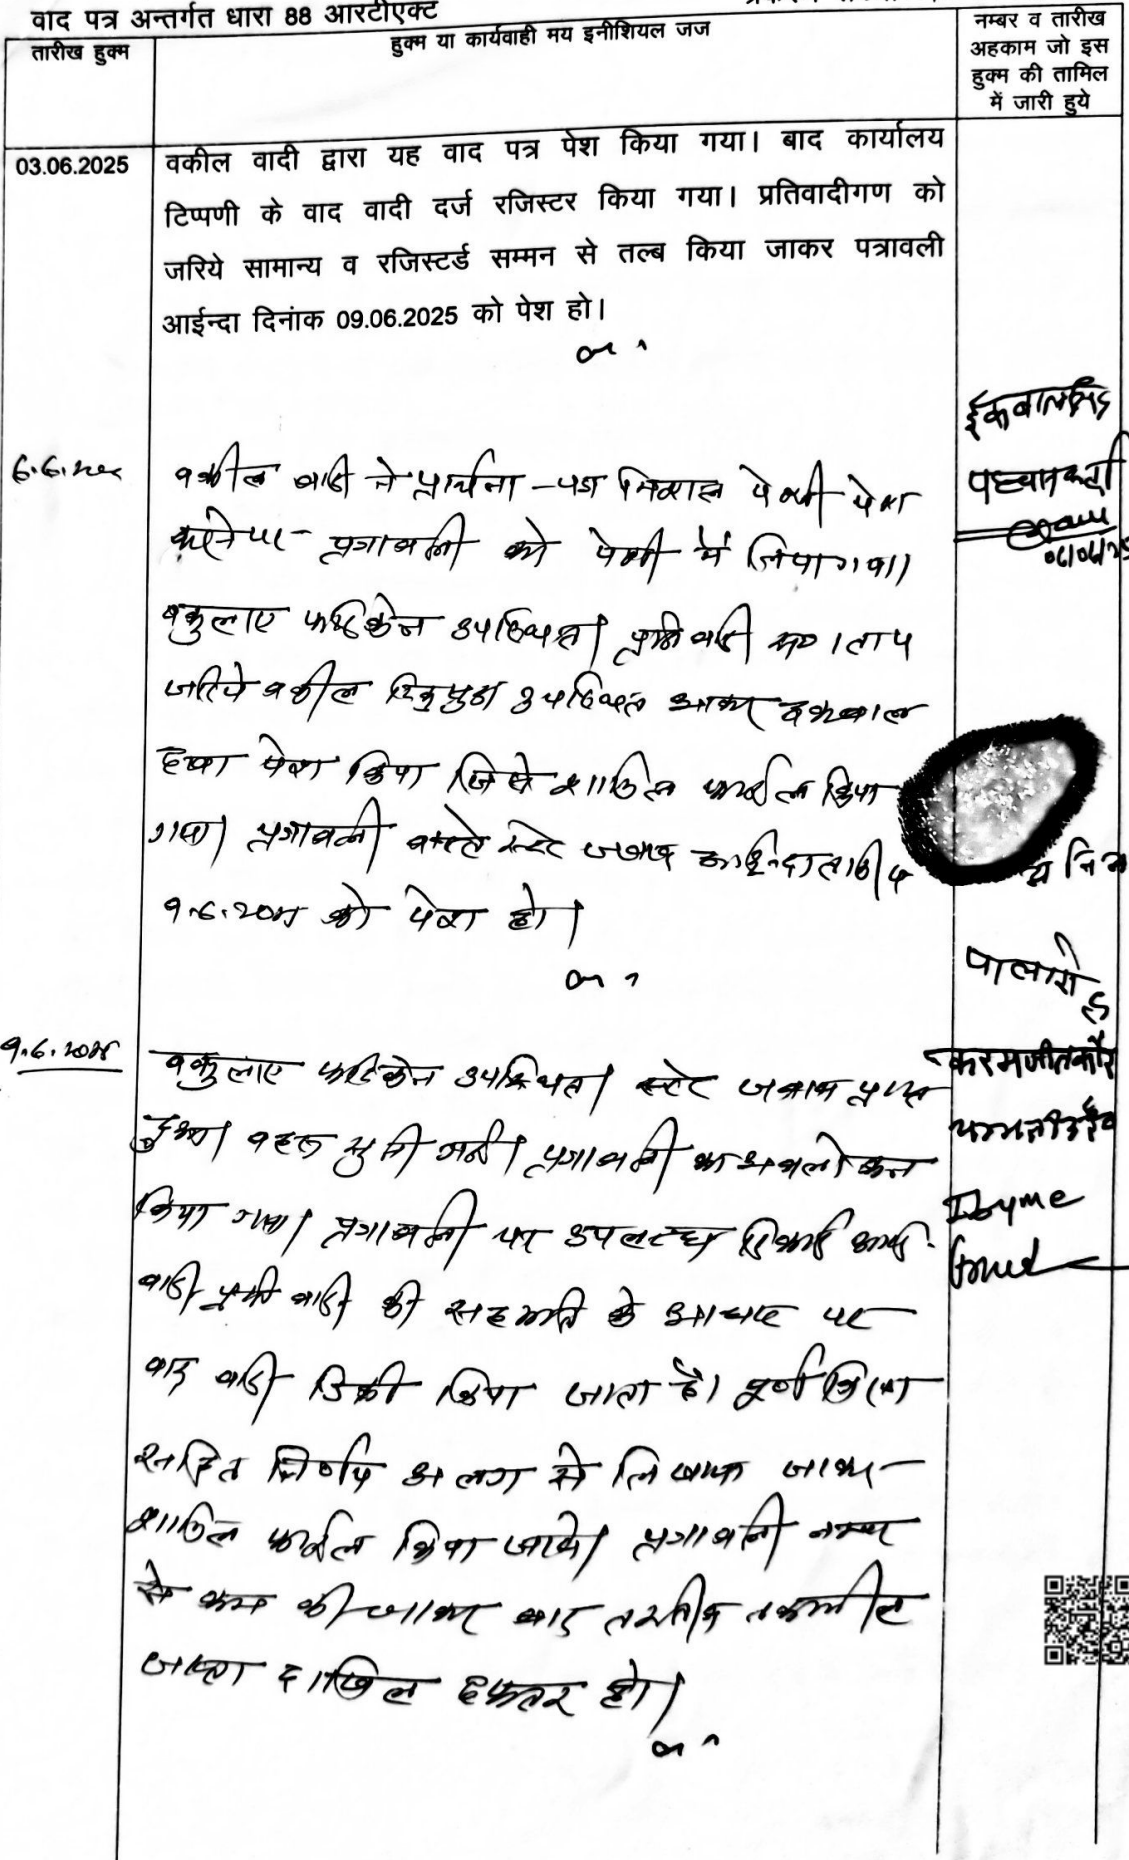 वाद पत्र अन्तर्गत धारा 88 आरटीएक्ट
तारीख हुक्म
हुक्म या कार्यवाही मय इनीशियल जज
नम्बर व तारीख
अहकाम जो इस
हुक्म की तामिल
में जारी हुये
03.06.2025
वकील वादी द्वारा यह वाद पत्र पेश किया गया। बाद कार्यालय
टिप्पणी के वाद वादी दर्ज रजिस्टर किया गया। प्रतिवादीगण को
जरिये सामान्य व रजिस्टर्ड सम्मन से तल्ब किया जाकर पत्रावली
आईन्दा दिनांक 09.06.2025 को पेश हो।
वकील वादी ने प्रार्थना-पत्र पेशी पेश
करने पर पत्रावली को पेशी में लिया गया।
वकुलाए फरिकेन उपस्थित। प्रतिवादी
जरिये वकील उपस्थित आकर इकबाल
दावा पेश किया जिसे शामिल फाईल किया
गया। पत्रावली वास्ते स्टे जवाब आईन्दा तारीख
9.6.2025 को पेश हो।
ईकबालसिंह
06/06/25
पालासिंह
9.6.2025
वकुलाए फरिकेन उपस्थित। स्टेट जवाब प्राप्त
हुआ। बहस सुनी गई। पत्रावली का अवलोकन
किया गया। पत्रावली पर उपलब्ध रिकार्ड
वादी प्रतिवादी की सहमति के आधार पर
वाद वादी डिक्री किया जाता है। पूर्ण
सहित निर्णय अलग से लिखाया जाकर
शामिल फाईल किया जावे। पत्रावली नम्बर
से कम की जाकर बाद तरतीब तकमील
जाब्ता दाखिल दफ्तर हो।
करमजीतकौर